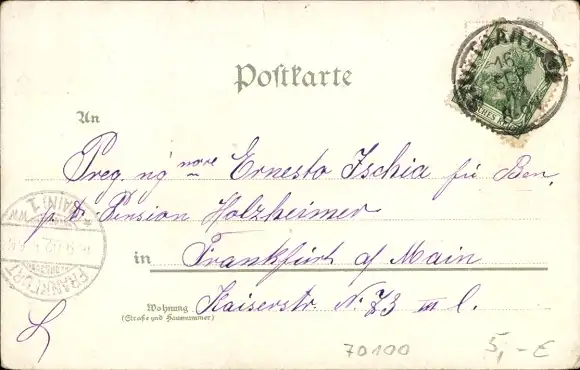 STUTTGART
16
SEP
Postkarte
An
Preg. ng nore Ernesto Ischia fu Ben.
p. ad. Pension Holzheimer
in Frankfurt a/ Main
Wohnung Kaiserstr. N. 73 III l.
(Straße und Hausnummer)
FRANKFURT
(MAIN) 1
70100
5,- €